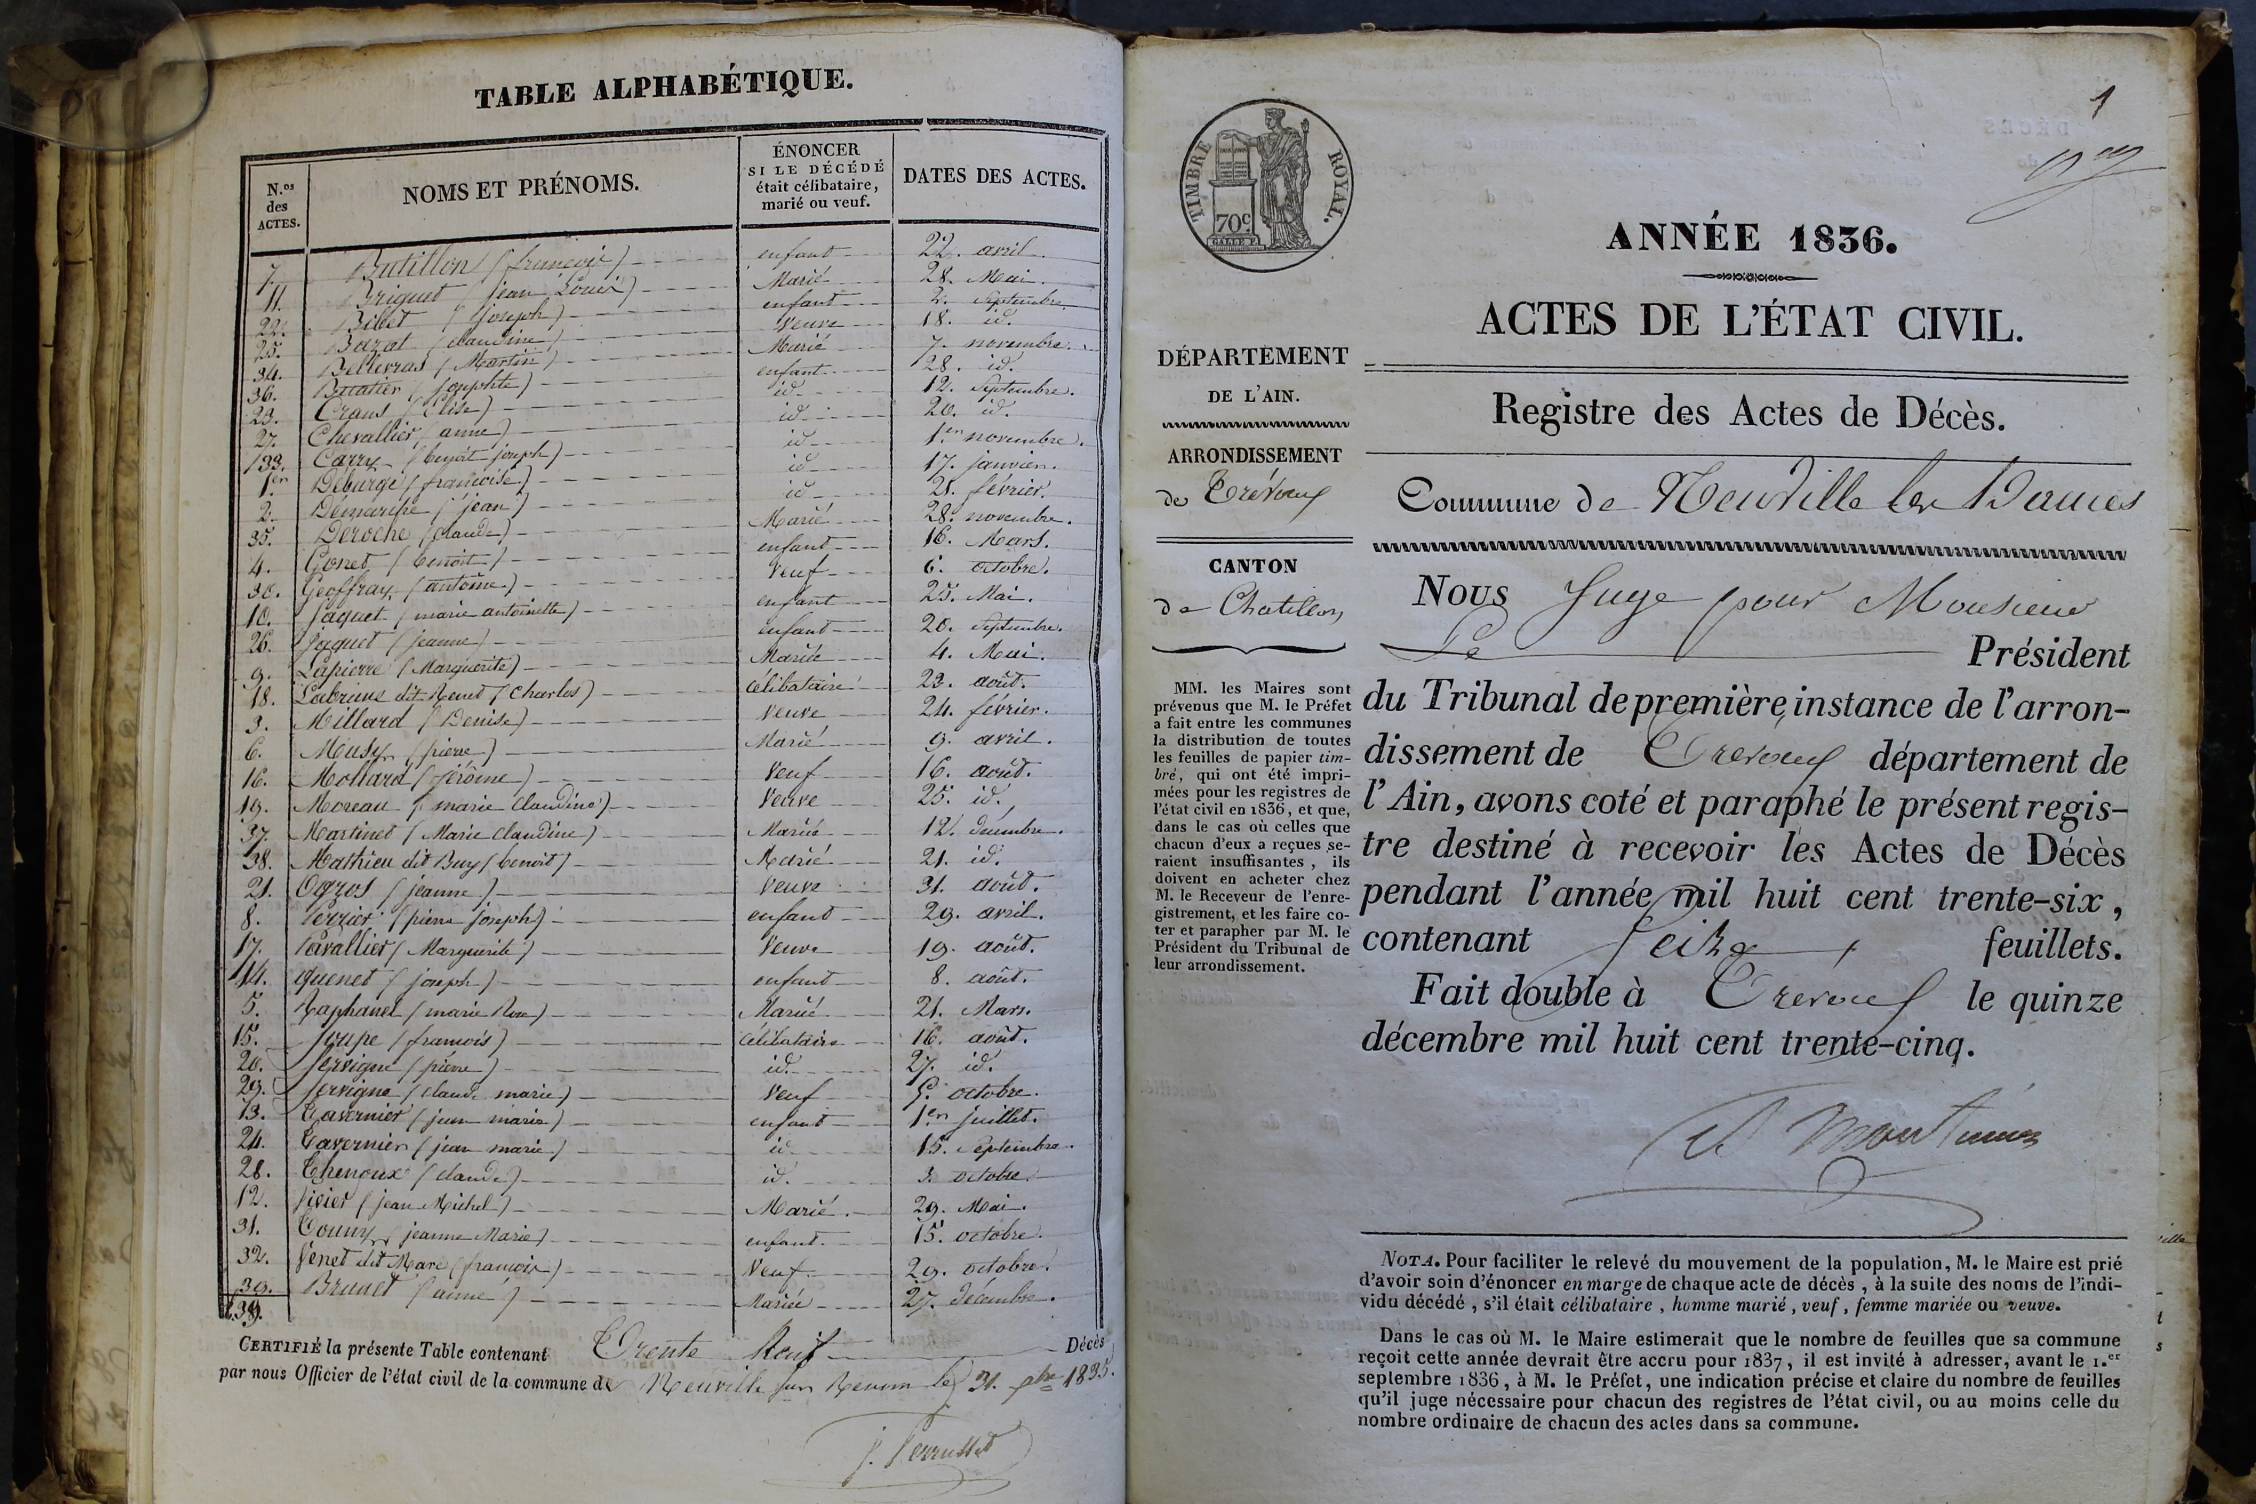 TABLE ALPHABÉTIQUE.
N.os des ACTES.
NOMS ET PRÉNOMS.
ÉNONCER SI LE DÉCÉDÉ était célibataire, marié ou veuf.
DATES DES ACTES.
7. Butillon (françois) enfant 22. avril.
11. Briquet (jean Louis) Marié 28. Mai.
22. Bibet (joseph) enfant 2. Septembre.
25. Bozat (claudine) Veuve 18. id.
34. (Martin) Marié 7. novembre.
36. enfant 28. id.
23. Crans (Elise) id 12. Septembre.
27. Chevallier (anne) id 20. id.
33. Carry (benoit joseph) id 1.er novembre.
1er Deburge (françoise) id 17. janvier.
2. (jean) id 21. février.
35. Deroche (claude) Marié 28. novembre.
4. Gonet (benoit) enfant 16. Mars.
30. Geoffray (antoine) Veuf 6. octobre.
10. Jaquet (marie antoinette) enfant 25. Mai.
26. Jaquet (jeanne) enfant 20. Septembre.
9. Lapierre (Marguerite) Mariée 4. Mai.
18. dit (Charles) célibataire 23. août.
3. Millard (Denise) Veuve 24. fevrier.
6. Musy (pierre) Marié 9. avril.
16. Mollard (jérôme) Veuf 16. août.
19. Moreau (marie claudine) Veuve 25. id.
37. Martinet (Marie claudine) Mariée 12. décembre.
38. Mathieu dit Buy (benoit) Marié 21. id.
21. Ogros (jeanne) Veuve 31. août.
8. Perrier (pierre joseph) enfant 29. avril.
17. Pavallier (Marguerite) Veuve 19. août.
14. quenet (joseph) enfant 8. août.
5. Raphanel (marie Rose) Mariée 21. Mars.
15. Soupe (francois) célibataire 16. août.
20. Servigne (pierre) id. 27. id.
29. Servigne (claude marie) Veuf 5. octobre.
13. Tavernier (jean marie) enfant 1er juillet.
24. Tavernier (jean marie) id 15. Septembre.
28. Thenoux (claude) id. 3. octobre.
12. (jean Michel) Marié. 29. Mai.
31. (jeanne Marie) enfant. 15. octobre.
32. Venet dit Mare (francois) Veuf 29. octobre.
39. Brunet (aimé) Mariée 27. décembre.
39.
CERTIFIÉ la présente Table contenant Trente Neuf Décès
par nous Officier de l'état civil de la commune de Neuville sur Renom le 31. 1835.
1
TIMBRE ROYAL.
70c
ANNÉE 1836.
ACTES DE L'ÉTAT CIVIL.
Registre des Actes de Décès.
DÉPARTEMENT
DE L'AIN.
ARRONDISSEMENT
de Trévoux
CANTON
de Chatillon
MM. les Maires sont
prévenus que M. le Préfet
a fait entre les communes
la distribution de toutes
les feuilles de papier tim-
bré, qui ont été impri-
mées pour les registres de
l'état civil en 1836, et que,
dans le cas où celles que
chacun d'eux a reçues se-
raient insuffisantes, ils
doivent en acheter chez
M. le Receveur de l'enre-
gistrement, et les faire co-
ter et parapher par M. le
Président du Tribunal de
leur arrondissement.
Commune de Neuville les Dames
Nous Juge pour Monsieur
Le Président
du Tribunal de première instance de l'arron-
dissement de Trevoux département de
l'Ain, avons coté et paraphé le présent regis-
tre destiné à recevoir les Actes de Décès
pendant l'année mil huit cent trente-six,
contenant Seize feuillets.
Fait double à Trevoux le quinze
décembre mil huit cent trente-cinq.
NOTA. Pour faciliter le relevé du mouvement de la population, M. le Maire est prié
d'avoir soin d'énoncer en marge de chaque acte de décès, à la suite des noms de l'indi-
vidu décédé, s'il était célibataire, homme marié, veuf, femme mariée ou veuve.
Dans le cas où M. le Maire estimerait que le nombre de feuilles que sa commune
reçoit cette année devrait être accru pour 1837, il est invité à adresser, avant le 1.er
septembre 1836, à M. le Préfet, une indication précise et claire du nombre de feuilles
qu'il juge nécessaire pour chacun des registres de l'état civil, ou au moins celle du
nombre ordinaire de chacun des actes dans sa commune.